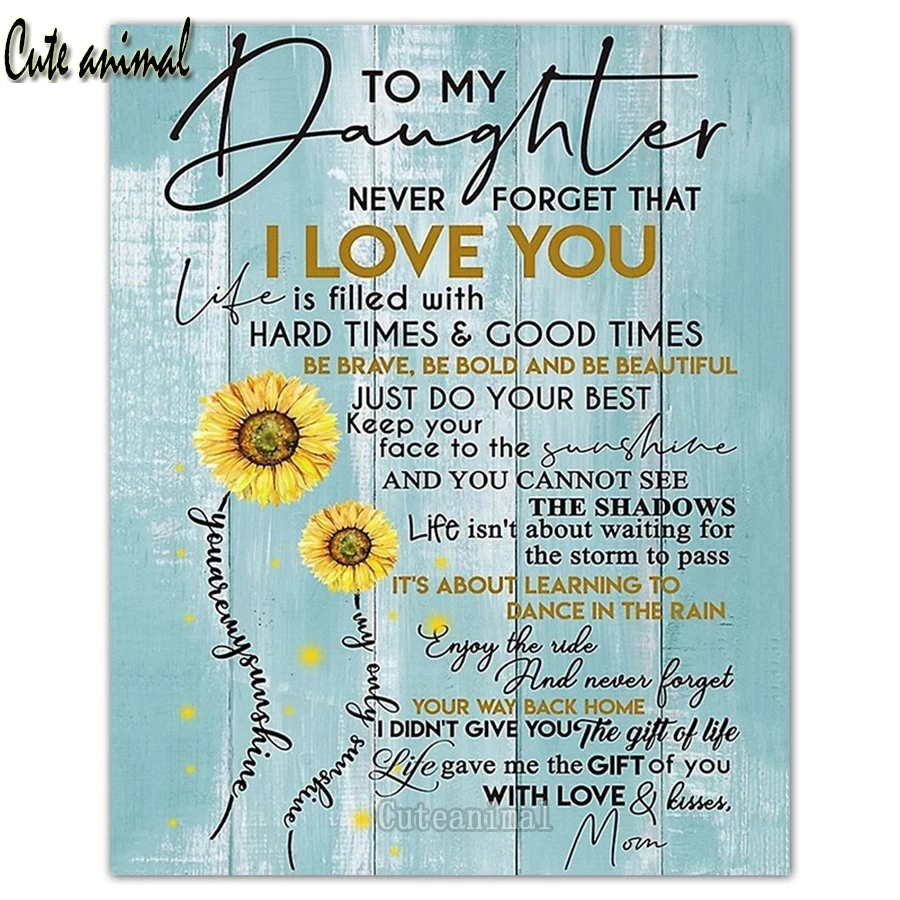 Cute animal
TO MY
Daughter
NEVER FORGET THAT
I LOVE YOU
Life is filled with
HARD TIMES & GOOD TIMES
BE BRAVE, BE BOLD AND BE BEAUTIFUL
JUST DO YOUR BEST
Keep your
face to the sunshine
AND YOU CANNOT SEE
THE SHADOWS
Life isn't about waiting for
the storm to pass
IT'S ABOUT LEARNING TO
DANCE IN THE RAIN
Enjoy the ride
And never forget
YOUR WAY BACK HOME
I DIDN'T GIVE YOU The gift of life
Life gave me the GIFT of you
WITH LOVE & kisses,
Mom
youaremysunshine
my only sunshine
Cuteanimal